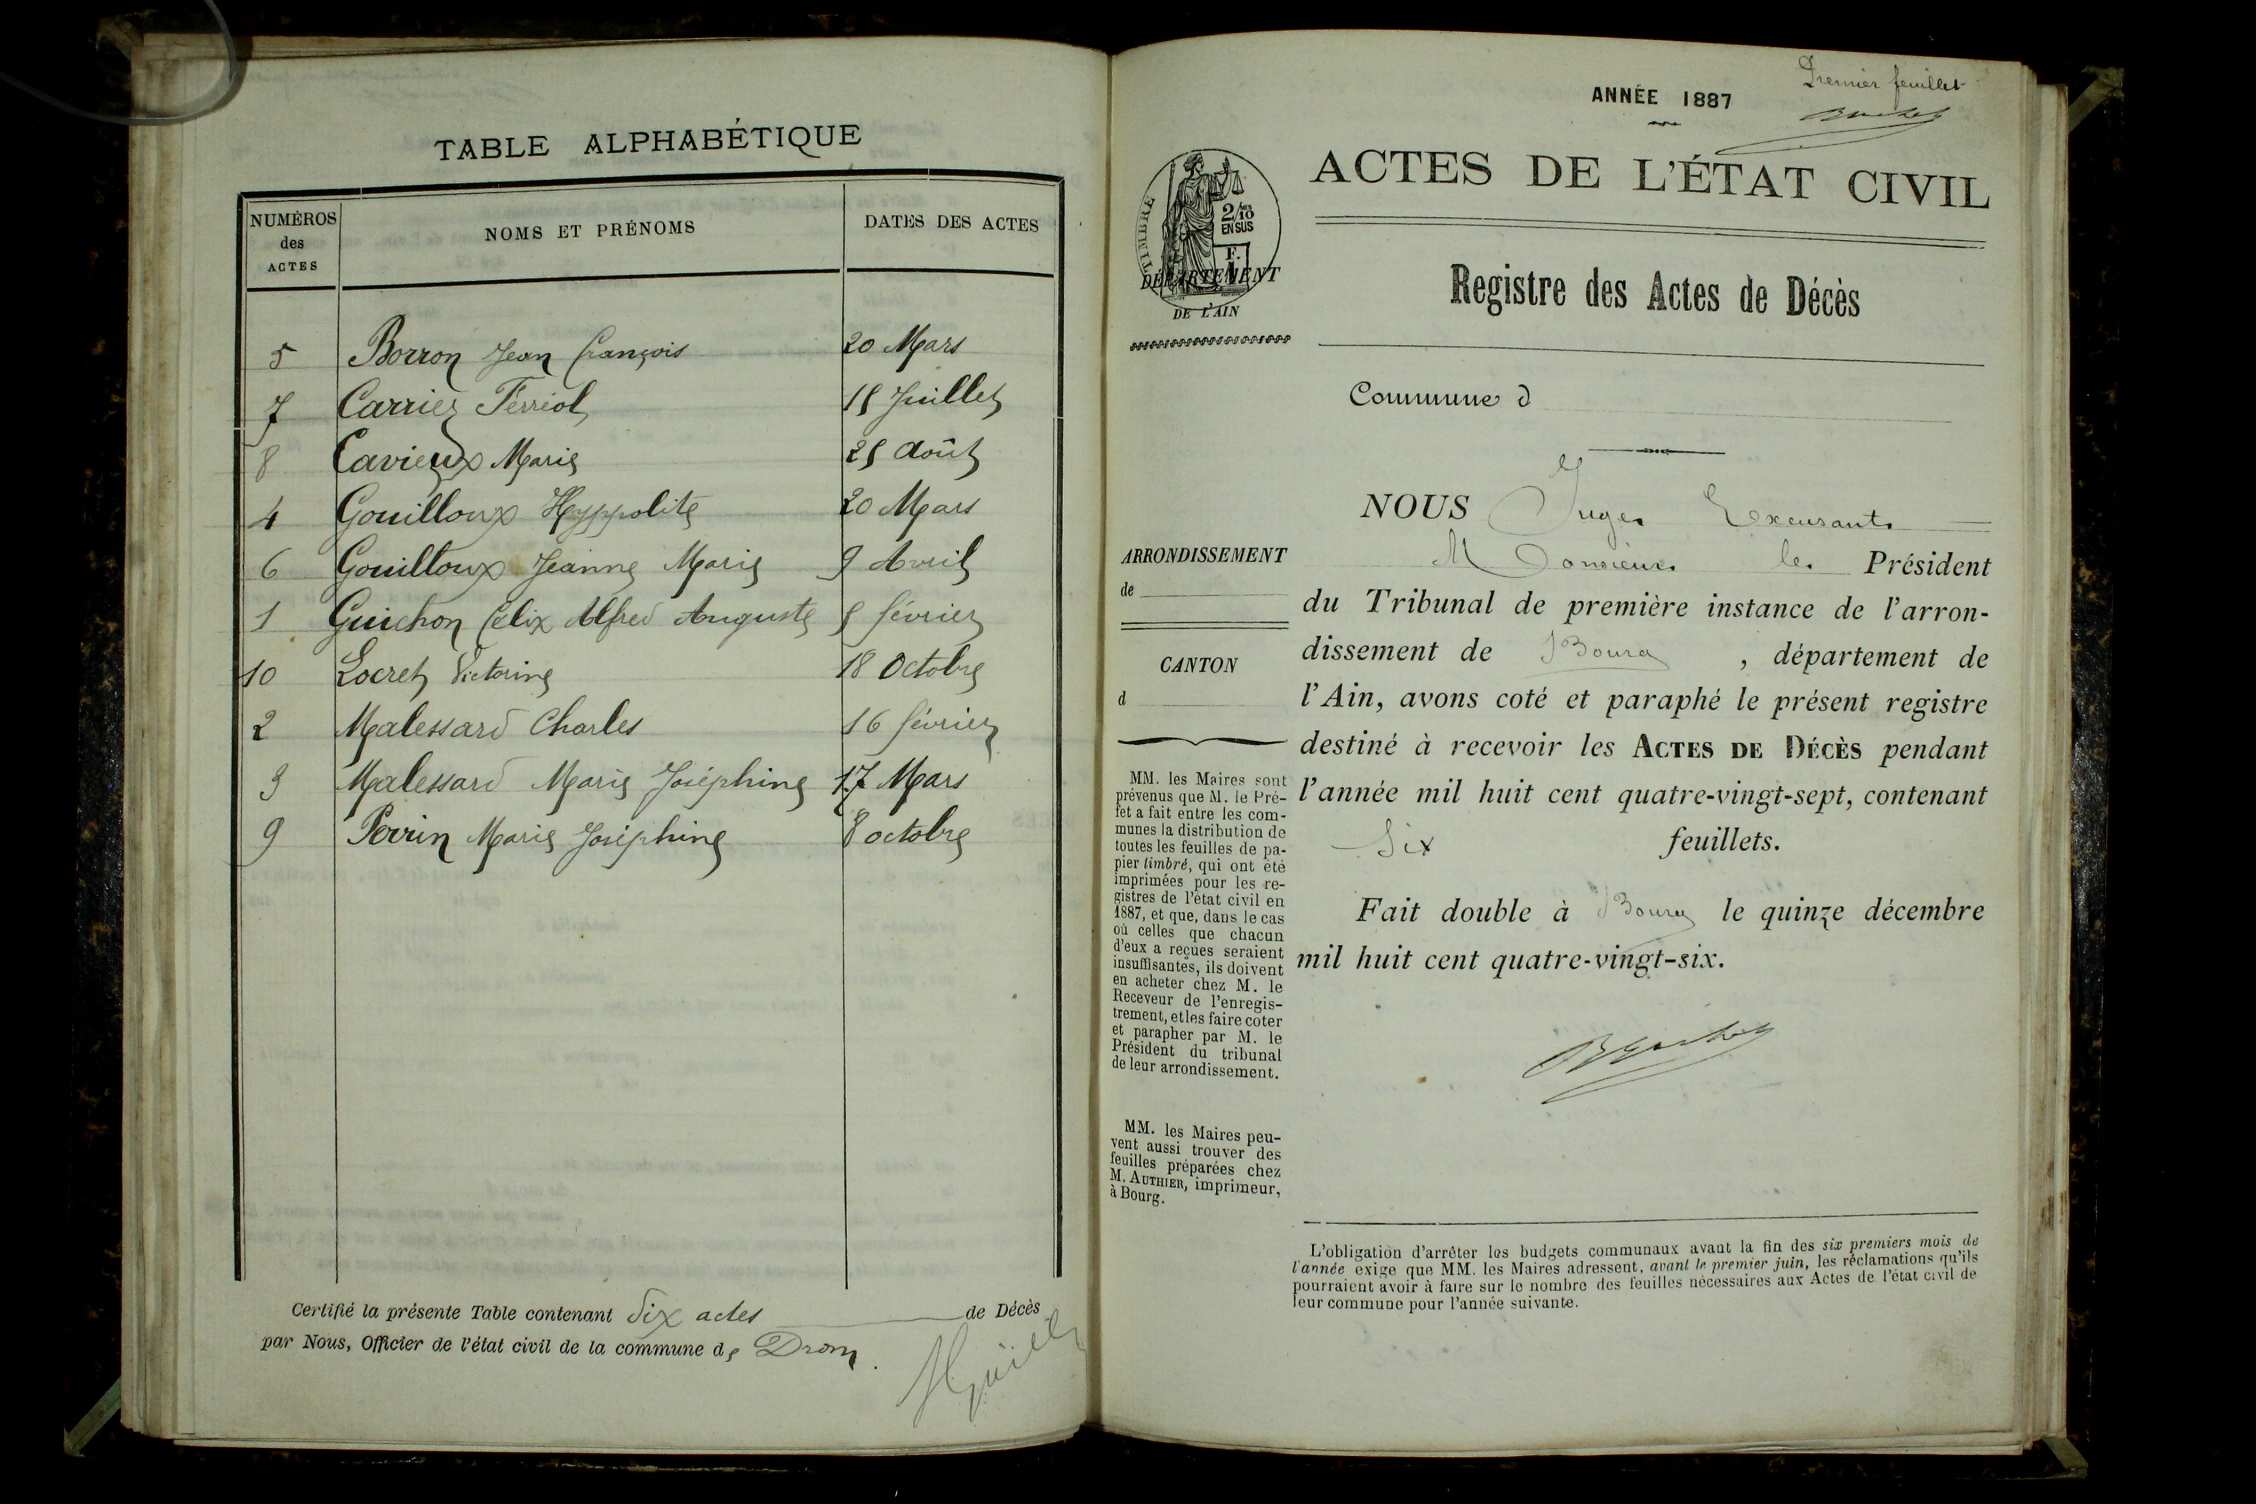 TABLE ALPHABÉTIQUE
NUMÉROS des ACTES NOMS ET PRÉNOMS DATES DES ACTES
5 Borron Jean François 20 Mars
7 Carrier Ferréol 15 Juillet
8 Cavieux Marie 25 Août
4 Gouilloux Hyppolite 20 Mars
6 Gouilloux Jeanne Marie 9 Avril
1 Guichon Félix Alfred Auguste 5 février
10 Locret Victorine 18 Octobre
2 Malessard Charles 16 février
3 Malessard Marie Joséphine 17 Mars
9 Perrin Marie Joséphine 8 octobre
Certifié la présente Table contenant Dix actes de Décès
par Nous, Officier de l'état civil de la commune de Drom.
Premier feuillet
ANNÉE 1887
ACTES DE L'ÉTAT CIVIL
TIMBRE
2/10
EN SUS
F.
1
DÉPARTEMENT
DE L'AIN
Registre des Actes de Décès
Commune d
NOUS Juge
Monsieur le Président
du Tribunal de première instance de l'arron-
dissement de Bourg, département de
l'Ain, avons coté et paraphé le présent registre
destiné à recevoir les ACTES DE DÉCÈS pendant
l'année mil huit cent quatre-vingt-sept, contenant
Six feuillets.
Fait double à Bourg le quinze décembre
mil huit cent quatre-vingt-six.
ARRONDISSEMENT
de
CANTON
d
MM. les Maires sont
prévenus que M. le Pré-
fet a fait entre les com-
munes la distribution de
toutes les feuilles de pa-
pier timbré, qui ont été
imprimées pour les re-
gistres de l'état civil en
1887, et que, dans le cas
où celles que chacun
d'eux a reçues seraient
insuffisantes, ils doivent
en acheter chez M. le
Receveur de l'enregis-
trement, et les faire coter
et parapher par M. le
Président du tribunal
de leur arrondissement.
MM. les Maires peu-
vent aussi trouver des
feuilles préparées chez
M. AUTHIER, imprimeur,
à Bourg.
L'obligation d'arrêter les budgets communaux avant la fin des six premiers mois de
l'année exige que MM. les Maires adressent, avant le premier juin, les réclamations qu'ils
pourraient avoir à faire sur le nombre des feuilles nécessaires aux Actes de l'état civil de
leur commune pour l'année suivante.